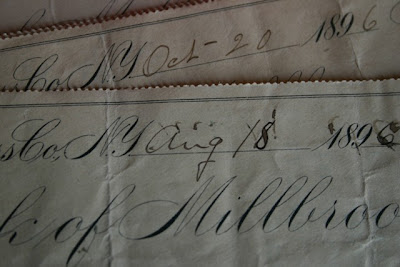 Co, N.Y. Oct - 20 1896
s Co, N.Y. Aug 18 1896
k of Millbroo